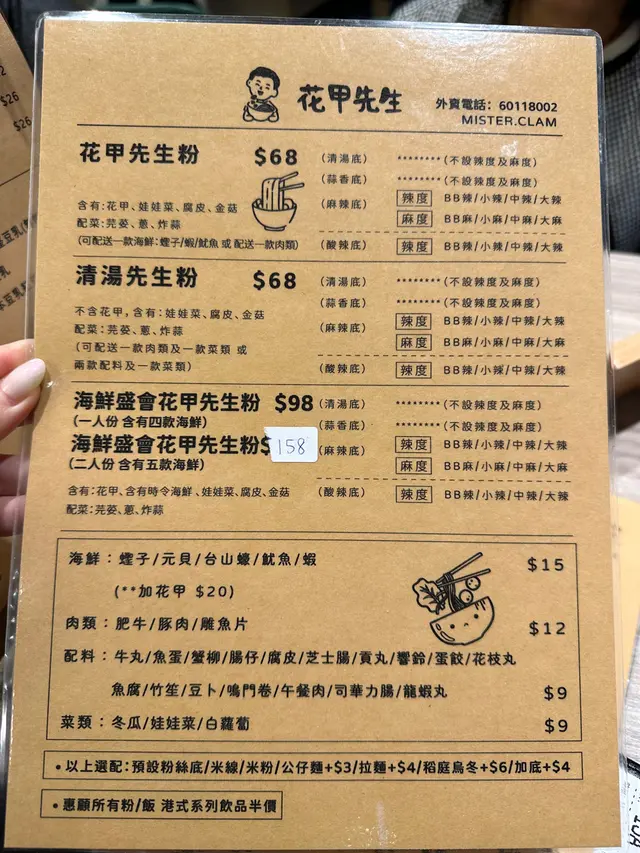 花甲先生
外賣電話: 60118002
MISTER.CLAM
花甲先生粉 $68
含有:花甲、娃娃菜、腐皮、金菇
配菜:芫荽、蔥、炸蒜
(可配送一款海鮮:蟶子/蝦/魷魚 或 配送一款肉類)
(清湯底) ********(不設辣度及麻度)
(蒜香底) ********(不設辣度及麻度)
(麻辣底) 辣度 BB辣/小辣/中辣/大辣
麻度 BB麻/小麻/中麻/大麻
(酸辣底) 辣度 BB辣/小辣/中辣/大辣
清湯先生粉 $68
不含花甲,含有:娃娃菜、腐皮、金菇
配菜:芫荽、蔥、炸蒜
(可配送一款肉類及一款菜類 或
兩款配料及一款菜類)
(清湯底) ********(不設辣度及麻度)
(蒜香底) ********(不設辣度及麻度)
(麻辣底) 辣度 BB辣/小辣/中辣/大辣
麻度 BB麻/小麻/中麻/大麻
(酸辣底) 辣度 BB辣/小辣/中辣/大辣
海鮮盛會花甲先生粉 $98
(一人份 含有四款海鮮)
海鮮盛會花甲先生粉$158
(二人份 含有五款海鮮)
含有:花甲、含有時令海鮮、娃娃菜、腐皮、金菇
配菜:芫荽、蔥、炸蒜
(清湯底) ********(不設辣度及麻度)
(蒜香底) ********(不設辣度及麻度)
(麻辣底) 辣度 BB辣/小辣/中辣/大辣
麻度 BB麻/小麻/中麻/大麻
(酸辣底) 辣度 BB辣/小辣/中辣/大辣
海鮮:蟶子/元貝/台山蠔/魷魚/蝦 $15
(**加花甲 $20)
肉類:肥牛/豚肉/鯇魚片 $12
配料:牛丸/魚蛋/蟹柳/腸仔/腐皮/芝士腸/貢丸/響鈴/蛋餃/花枝丸
魚腐/竹笙/豆卜/鳴門卷/午餐肉/司華力腸/龍蝦丸 $9
菜類:冬瓜/娃娃菜/白蘿蔔 $9
•以上選配:預設粉絲底/米線/米粉/公仔麵+$3/拉麵+$4/稻庭烏冬+$6/加底+$4
•惠顧所有粉/飯 港式系列飲品半價
$26
$26